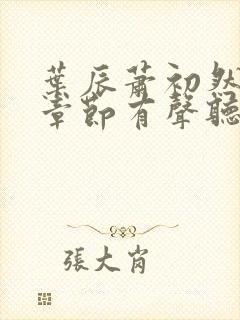 葉辰蕭初然
章節有聲聽
張大肖